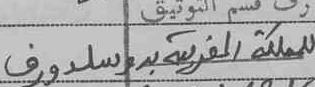 رف قسم التوثيق
للمملكة المغربية بدوسلدورف